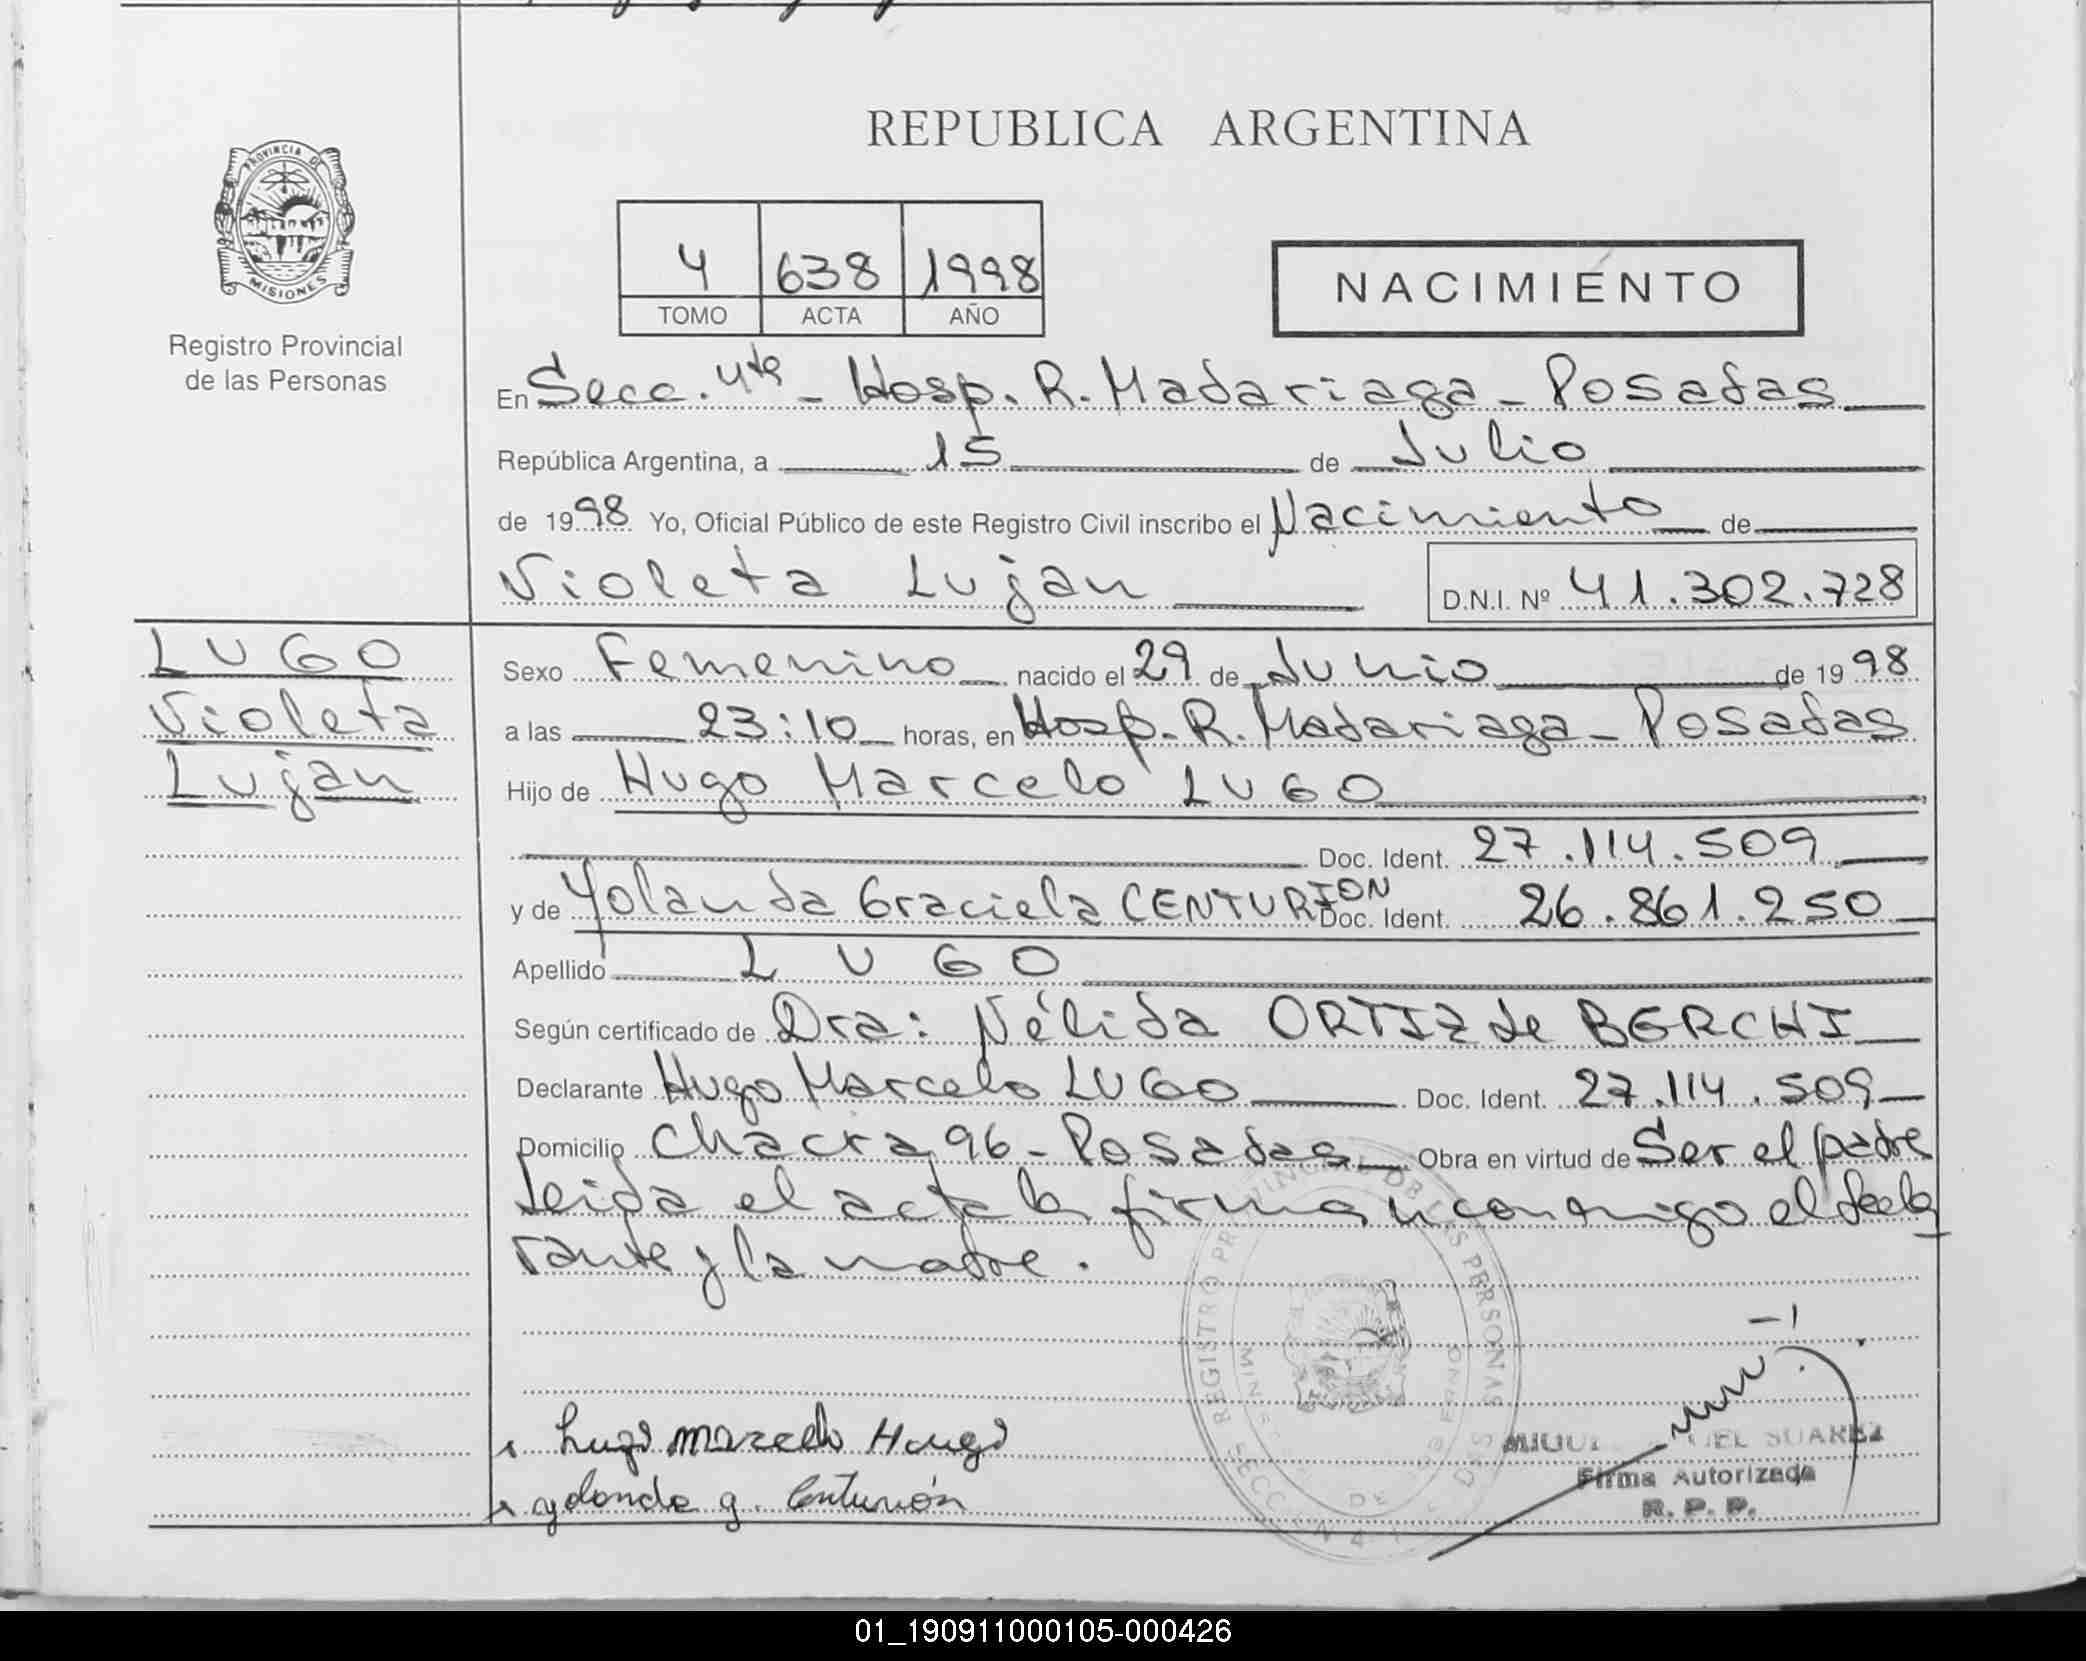 REPUBLICA ARGENTINA
PROVINCIA DE
MISIONES
Registro Provincial
de las Personas
4 638 1998
TOMO ACTA AÑO
NACIMIENTO
En Secc. 4ta - Hosp. R. Madariaga - Posadas
República Argentina, a 15 de Julio
de 1998 Yo, Oficial Público de este Registro Civil inscribo el Nacimiento de
Violeta Lujan D.N.I. Nº 41.302.728
LUGO
Violeta
Lujan
Sexo Femenino nacido el 29 de Junio de 1998
a las 23:10 horas, en Hosp. R. Madariaga - Posadas
Hijo de Hugo Marcelo LUGO
Doc. Ident. 27.114.509
y de Yolanda Graciela CENTURION Doc. Ident. 26.861.250
Apellido LUGO
Según certificado de Dra: Nélida ORTIZ de BERCHI
Declarante Hugo Marcelo LUGO Doc. Ident. 27.114.509
Domicilio Chacra 96 - Posadas Obra en virtud de Ser el padre
Leida el acta la firman conmigo el decla
rante y la madre.
REGISTRO PROVINCIAL DE LAS PERSONAS
Lugo Marcelo Hugo
yolanda g. Centurión
SUAREZ
Firma Autorizada
R. P. P.
01_190911000105-000426